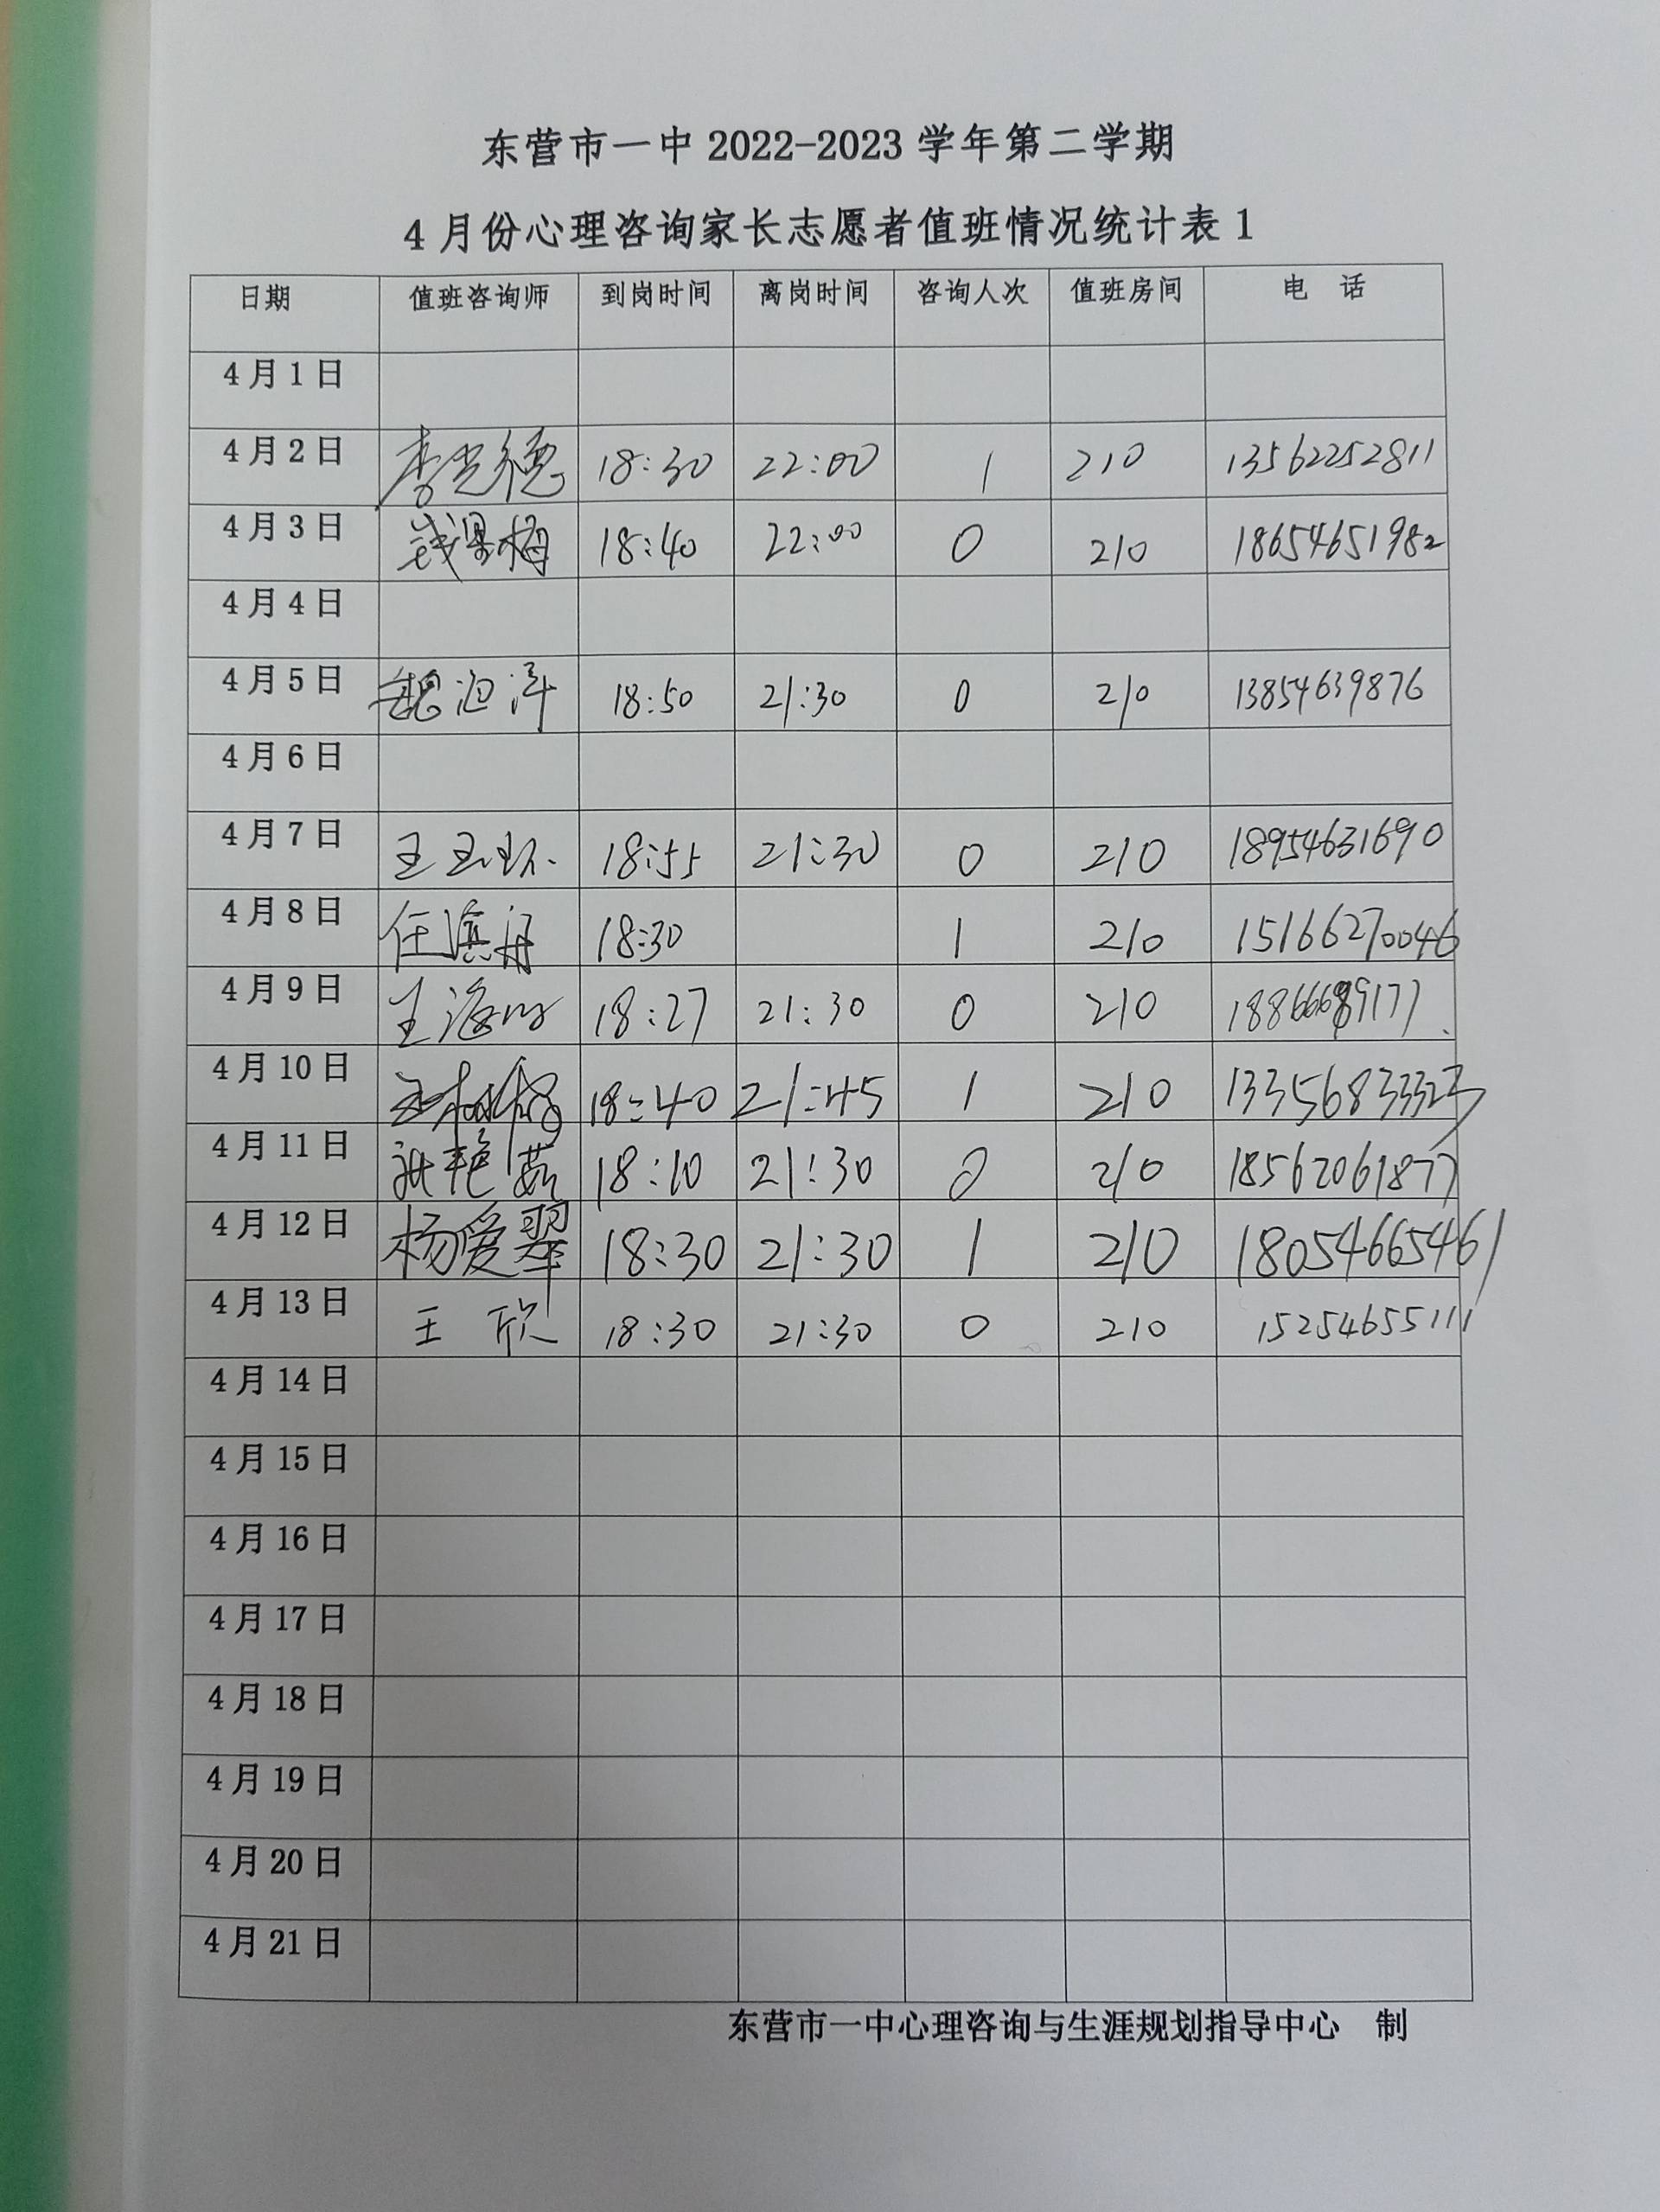 东营市一中 2022-2023 学年第二学期
4 月份心理咨询家长志愿者值班情况统计表 1
日期 值班咨询师 到岗时间 离岗时间 咨询人次 值班房间 电 话
4 月 1 日
4 月 2 日 李光德 18:30 22:00 1 210 13562252811
4 月 3 日 18:40 22:00 0 210 18654651982
4 月 4 日
4 月 5 日 18:50 21:30 0 210 13854639876
4 月 6 日
4 月 7 日 王玉环 18:55 21:30 0 210 18954631690
4 月 8 日 任滨丹 18:30 1 210 15166270046
4 月 9 日 18:27 21:30 0 210
4 月 10 日 18:40 21:45 1 210
4 月 11 日 18:10 21:30 0 210 18562061877
4 月 12 日 杨爱翠 18:30 21:30 1 210 18054665461
4 月 13 日 王 欣 18:30 21:30 0 210 15254655111
4 月 14 日
4 月 15 日
4 月 16 日
4 月 17 日
4 月 18 日
4 月 19 日
4 月 20 日
4 月 21 日
东营市一中心理咨询与生涯规划指导中心 制